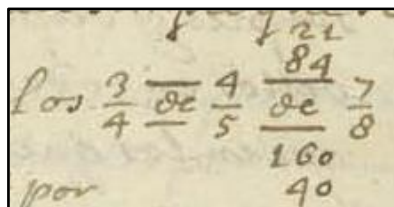 21
84
los 3/4 de 4/5 de 7/8
160
por 40